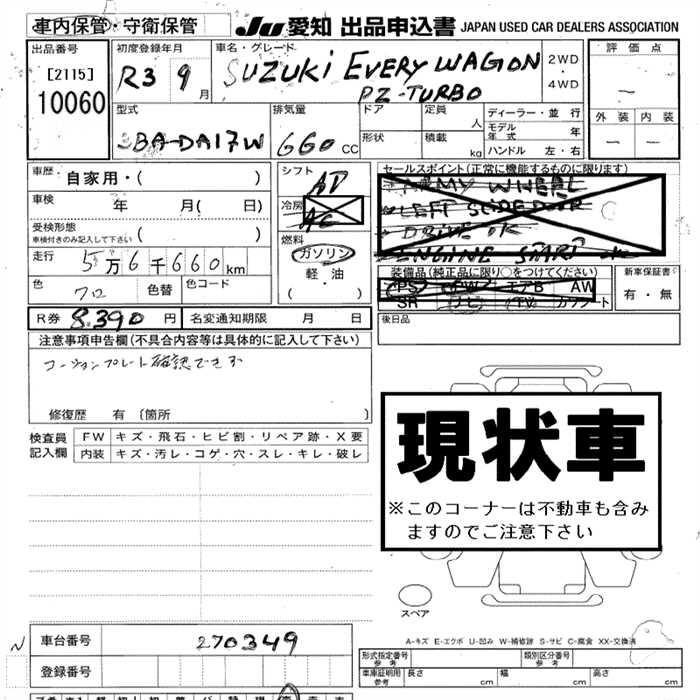 車内保管・守衛保管
JU 愛知 出品申込書 JAPAN USED CAR DEALERS ASSOCIATION
出品番号
[2115]
10060
初度登録年月
R3 9 月
車名・グレード
SUZUKI EVERY WAGON
PZ-TURBO
2WD
・
4WD
評価点
—
外装 内装
— —
型式
3BA-DA17W
排気量
660 CC
ドア
形状
定員 人
積載 kg
ディーラー・並行
モデル年式 年
ハンドル 左・右
車歴 自家用・( )
車検 年 月( 日)
受検形態
車検付きのみ記入して下さい ( )
走行 5万6千660km
色 クロ 色替 色コード
シフト AT
冷房 AC
燃料
ガソリン
軽・油
( )
セールスポイント(正常に機能するものに限ります)
ARMY WHEEL
LEFT SLIDE DOOR
DRIVE OK
ENGINE START OK
装備品(純正品に限り○をつけてください)
PS PW エアB AW
SR ナビ TV カワシート
新車保証書
有・無
R券 8.390 円 名変通知期限 月 日
後日品
注意事項申告欄(不具合内容等は具体的に記入して下さい)
コーションプレート確認できず
修復歴 有(箇所 )
検査員
記入欄
FW キズ・飛石・ヒビ割・リペア跡・X要
内装 キズ・汚レ・コゲ・穴・スレ・キレ・破レ
現状車
※このコーナーは不動車も含み
ますのでご注意下さい
スペア
A-キズ E-エクボ U-凹み W-補修跡 S-サビ C-腐食 XX-交換済
N 車台番号 270349
登録番号
形式指定番号
参考
類別区分番号
参考
車庫証明用
参考
長さ cm 幅 cm 高さ cm